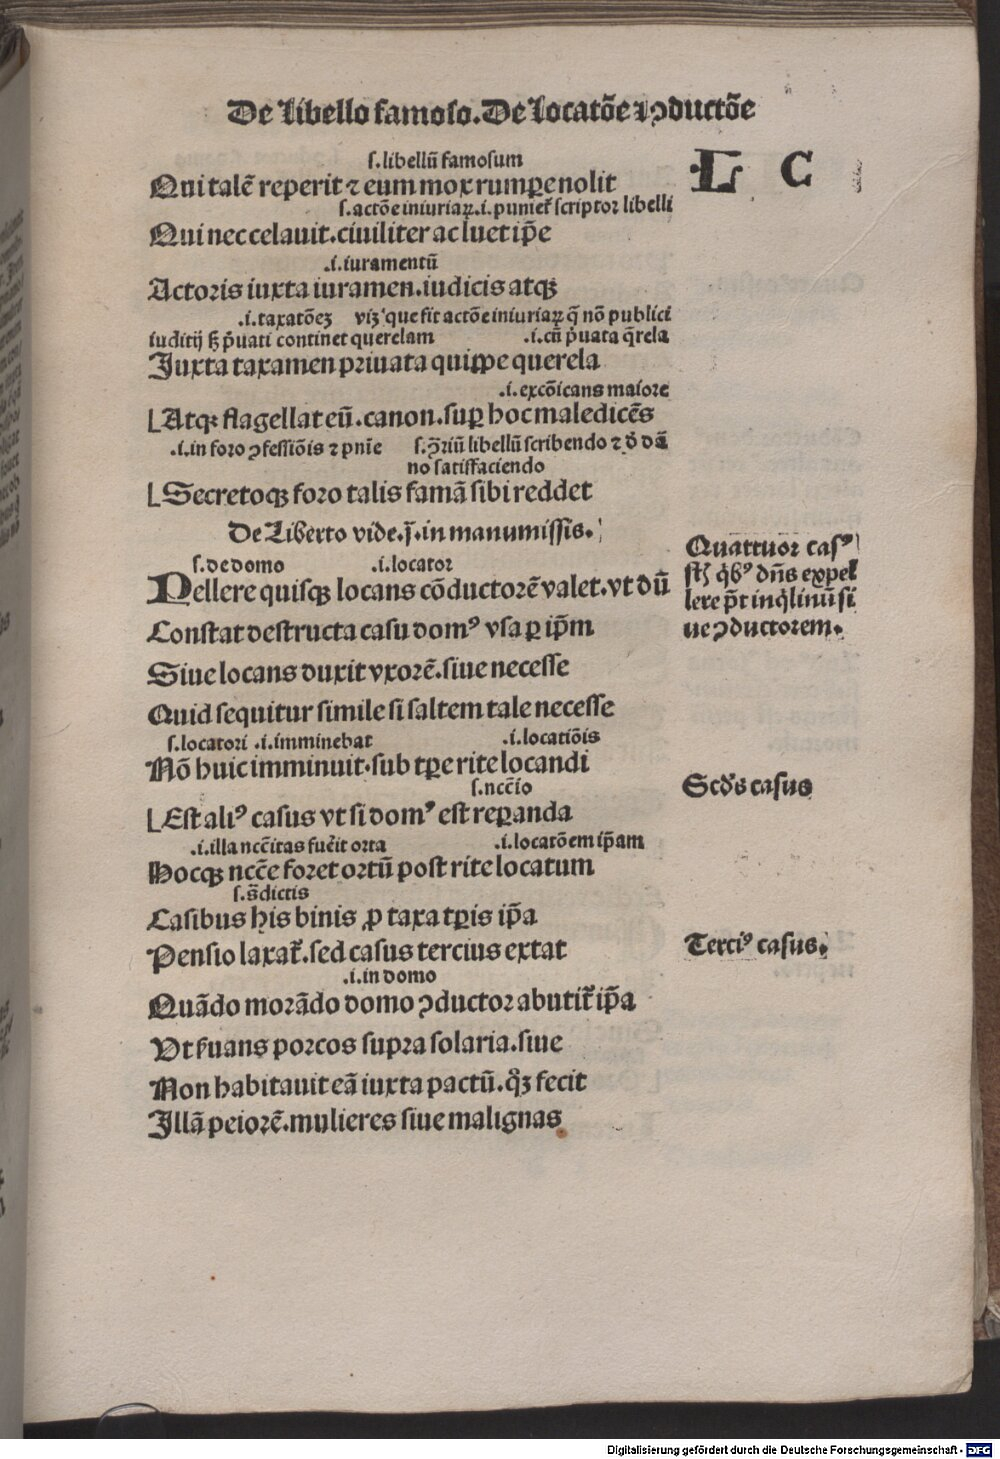 De Libello famoso. De locatõe ⁊ ꝯductõe
L C
s. libellũ famosum
Qui talẽ reperit ⁊ eum mox rumꝑe nolit
s. actõe iniuriaꝝ .i. punieť scriptor libelli
Qui nec celauit. ciuiliter ac luet ip̃e
.i. iuramentũ
Actoris iuxta iuramen. iudicis atqꝫ
.i. taxatõeꝫ viꝫ que fit actõe iniuriaꝝ q̃ nõ publici
iuditij sꝫ p̃uati continet querelam .i. cũ p̃uata q̃rela
Iuxta taxamen priuata quiꝑpe querela
.i. excõicans maiore
Atqꝫ flagellat eũ. canon. suꝑ hoc maledicẽs
.i. in foro ꝯfessiõis ⁊ pn̄ie s. ꝯ̃riũ libellũ scribendo ⁊ ꝺ̓ dã
no satisfaciendo
Secretoqꝫ foro talis famã sibi reddet
De Liberto vide. j̃. in manumissis.
Quattuor casꝰ
s. de domo .i. locator
Pellere quisqꝫ locans cõductorẽ valet. vt dũ
st̃ q̓bꝰ dñs expel
lere p̃t inq̓linũ si
Constat destructa casu domꝰ vsa ꝑ ip̃m
ue ꝯductorem.
Siue locans duxit vxorẽ. siue necesse
Quid sequitur simile si saltem tale necesse
s. locatori .i. imminebat .i. locatiõis
Nõ huic imminuit. sub tꝑe rite locandi
s. nccĩo
Scd̓s casus
Est aliꝰ casus vt si domꝰ est reꝑanda
.i. illa nccĩtas fuẽit orta .i. locatõem ip̃am
Hocqꝫ nccẽ foret ortũ post rite locatum
s. s̃dictis
Casibus his binis ꝓ taxa tꝑis ip̃a
Pensio laxať. sed casus tercius extat
Terciꝰ casus.
.i. in domo
Quãdo morãdo domo ꝯductor abutiť ip̃a
Vt ẜuans porcos supra solaria. siue
Non habitauit eã iuxta pactũ. q̊ꝫ fecit
Illã peiorẽ. mulieres siue malignas
Digitalisierung gefördert durch die Deutsche Forschungsgemeinschaft - DFG